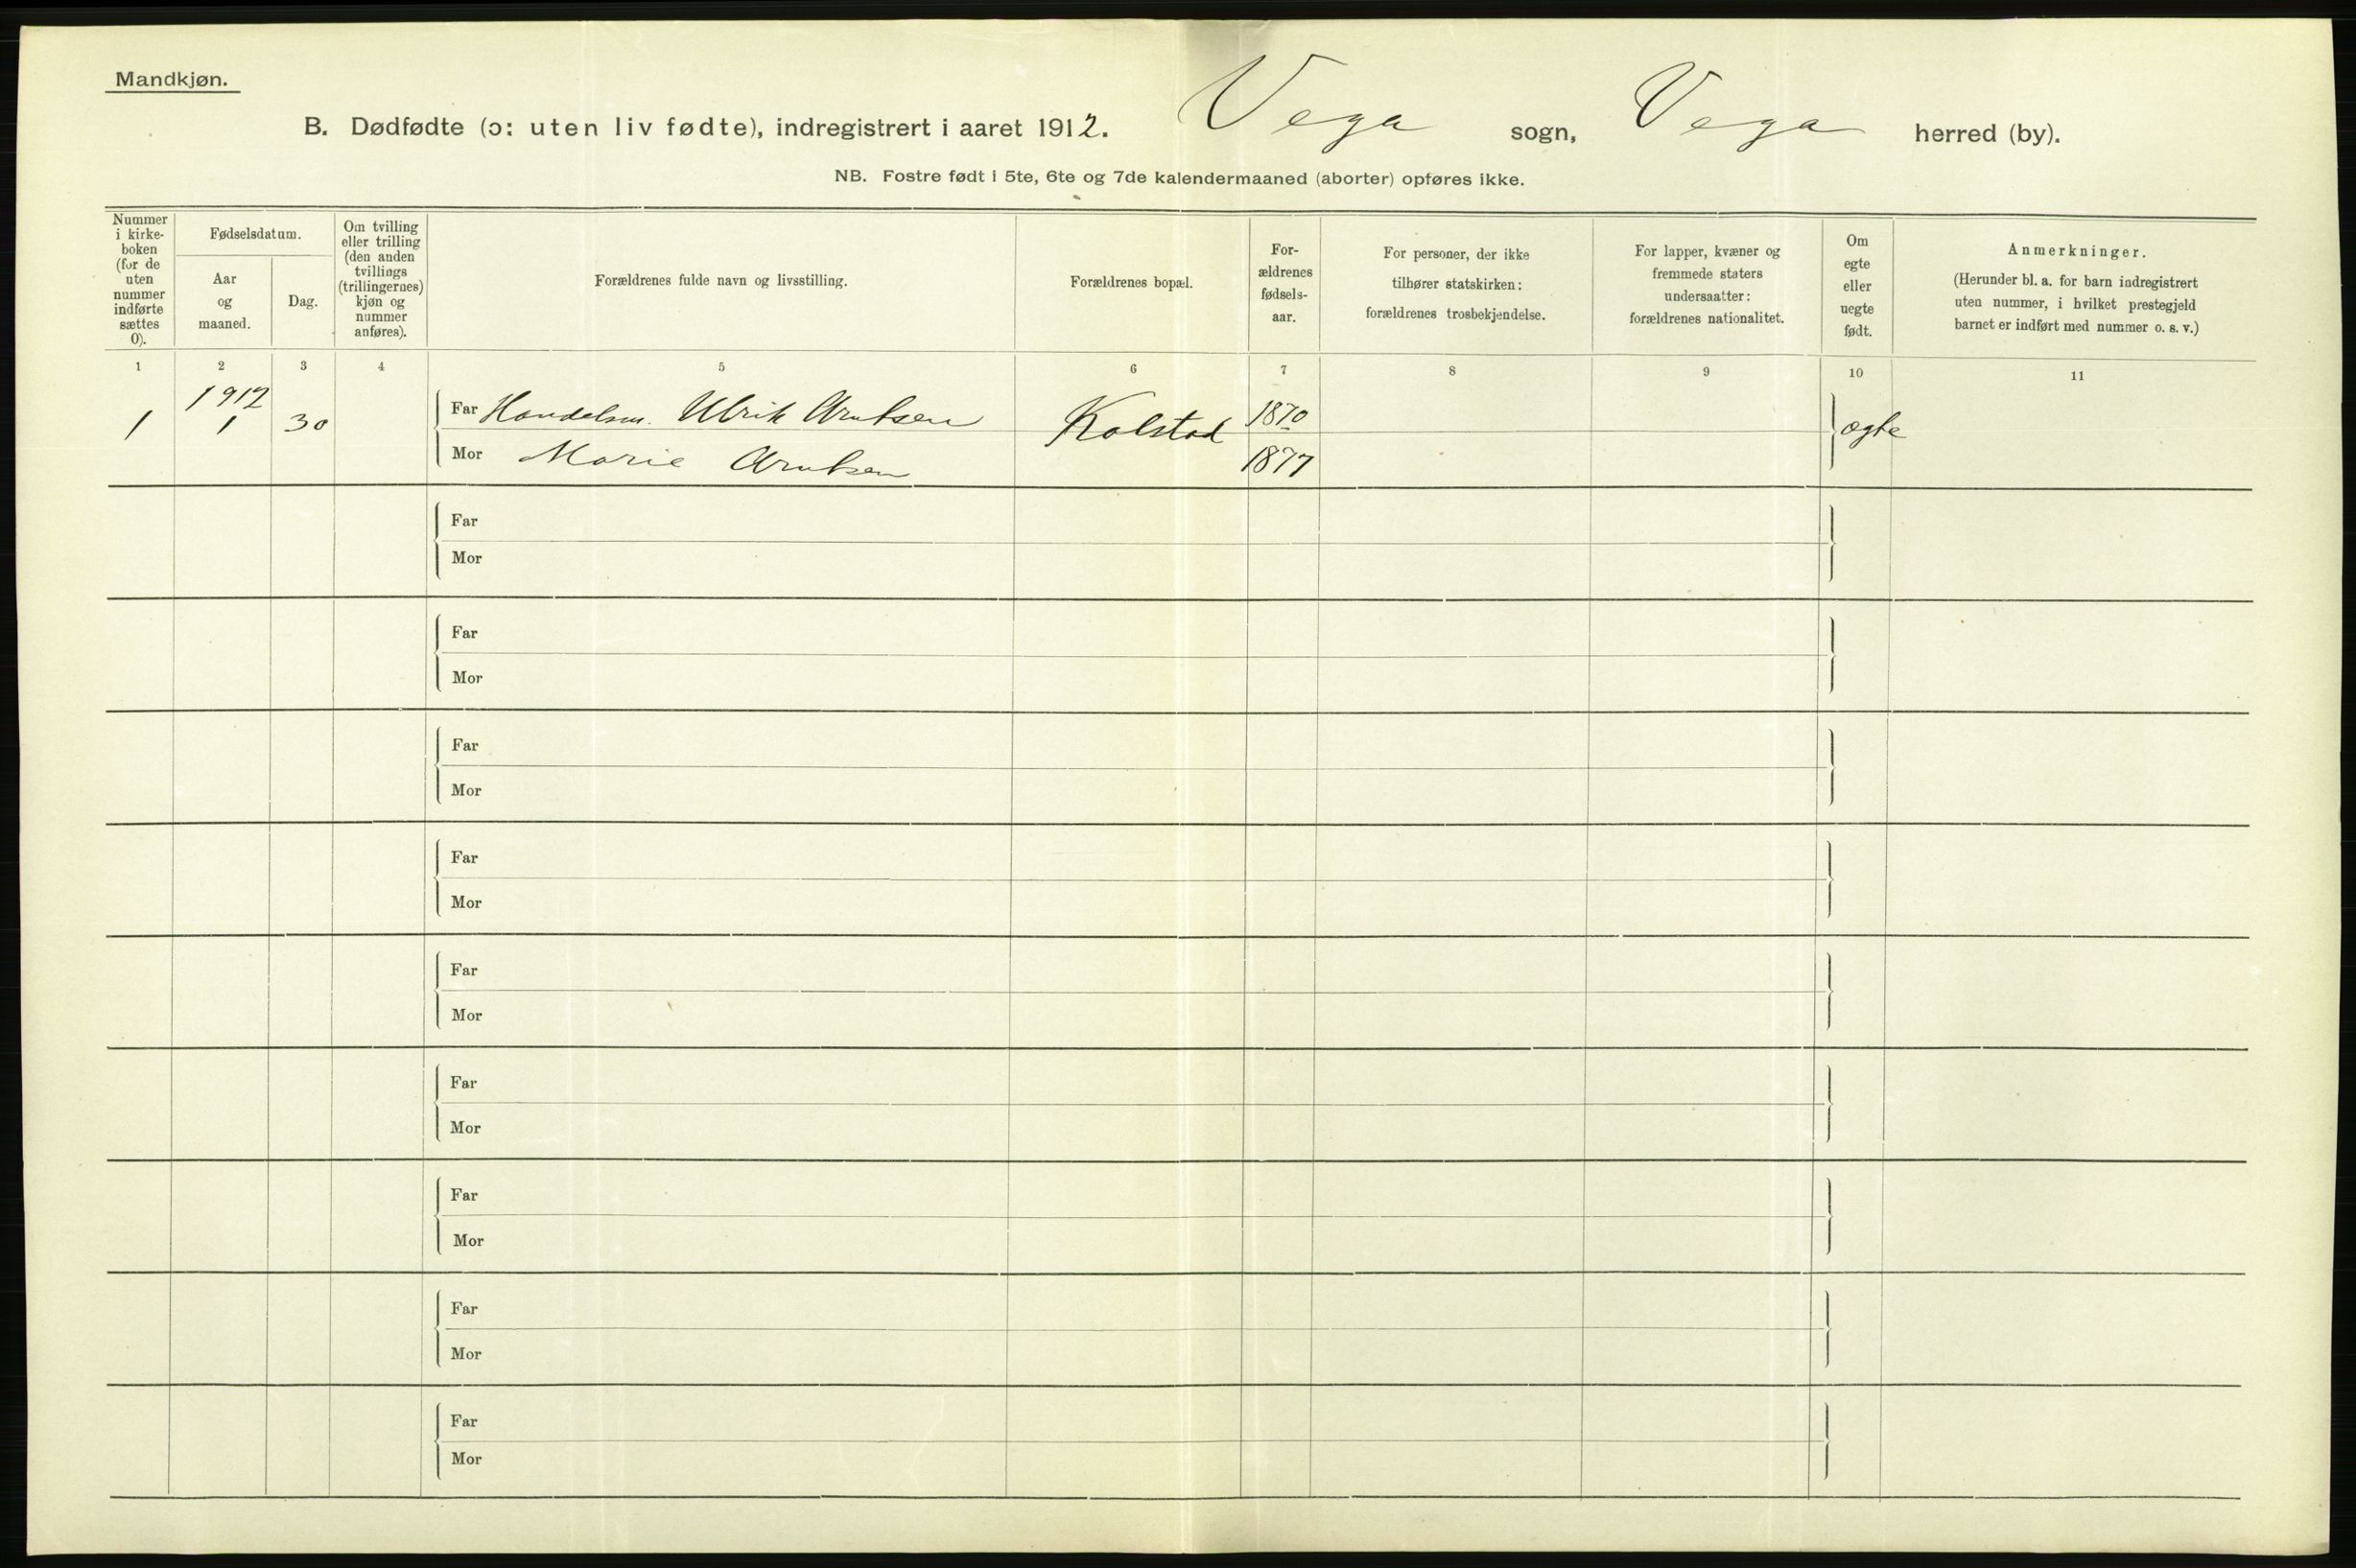 Mandkjøn.
B. Dødfødte (ɔ: uten liv fødte), indregistrert i aaret 1912. Vega sogn, Vega herred (by).
NB. Fostre født i 5te, 6te og 7de kalendermaaned (aborter) opføres ikke.
Nummer
i kirke-
boken
(for de
uten
nummer
indførte
sættes
0).
Fødselsdatum.
Aar
og
maaned.
Dag.
Om tvilling
eller trilling
(den anden
tvillings
(trillingernes)
kjøn og
nummer
anføres).
Forældrenes fulde navn og livsstilling.
Forældrenes bopæl.
For-
ældrenes
fødsels-
aar.
For personer, der ikke
tilhører statskirken:
forældrenes trosbekjendelse.
For lapper, kvæner og
fremmede staters
undersaatter:
forældrenes nationalitet.
Om
egte
eller
uegte
født.
Anmerkninger.
(Herunder bl. a. for barn indregistrert
uten nummer, i hvilket prestegjeld
barnet er indført med nummer o. s. v.)
1 2 3 4 5 6 7 8 9 10 11
1912
1 1 30 Far Handelsm. Ulrik Arntsen Kolstad 1870 egte
Mor Marie Arntsen 1877
Far
Mor
Far
Mor
Far
Mor
Far
Mor
Far
Mor
Far
Mor
Far
Mor
Far
Mor
Far
Mor